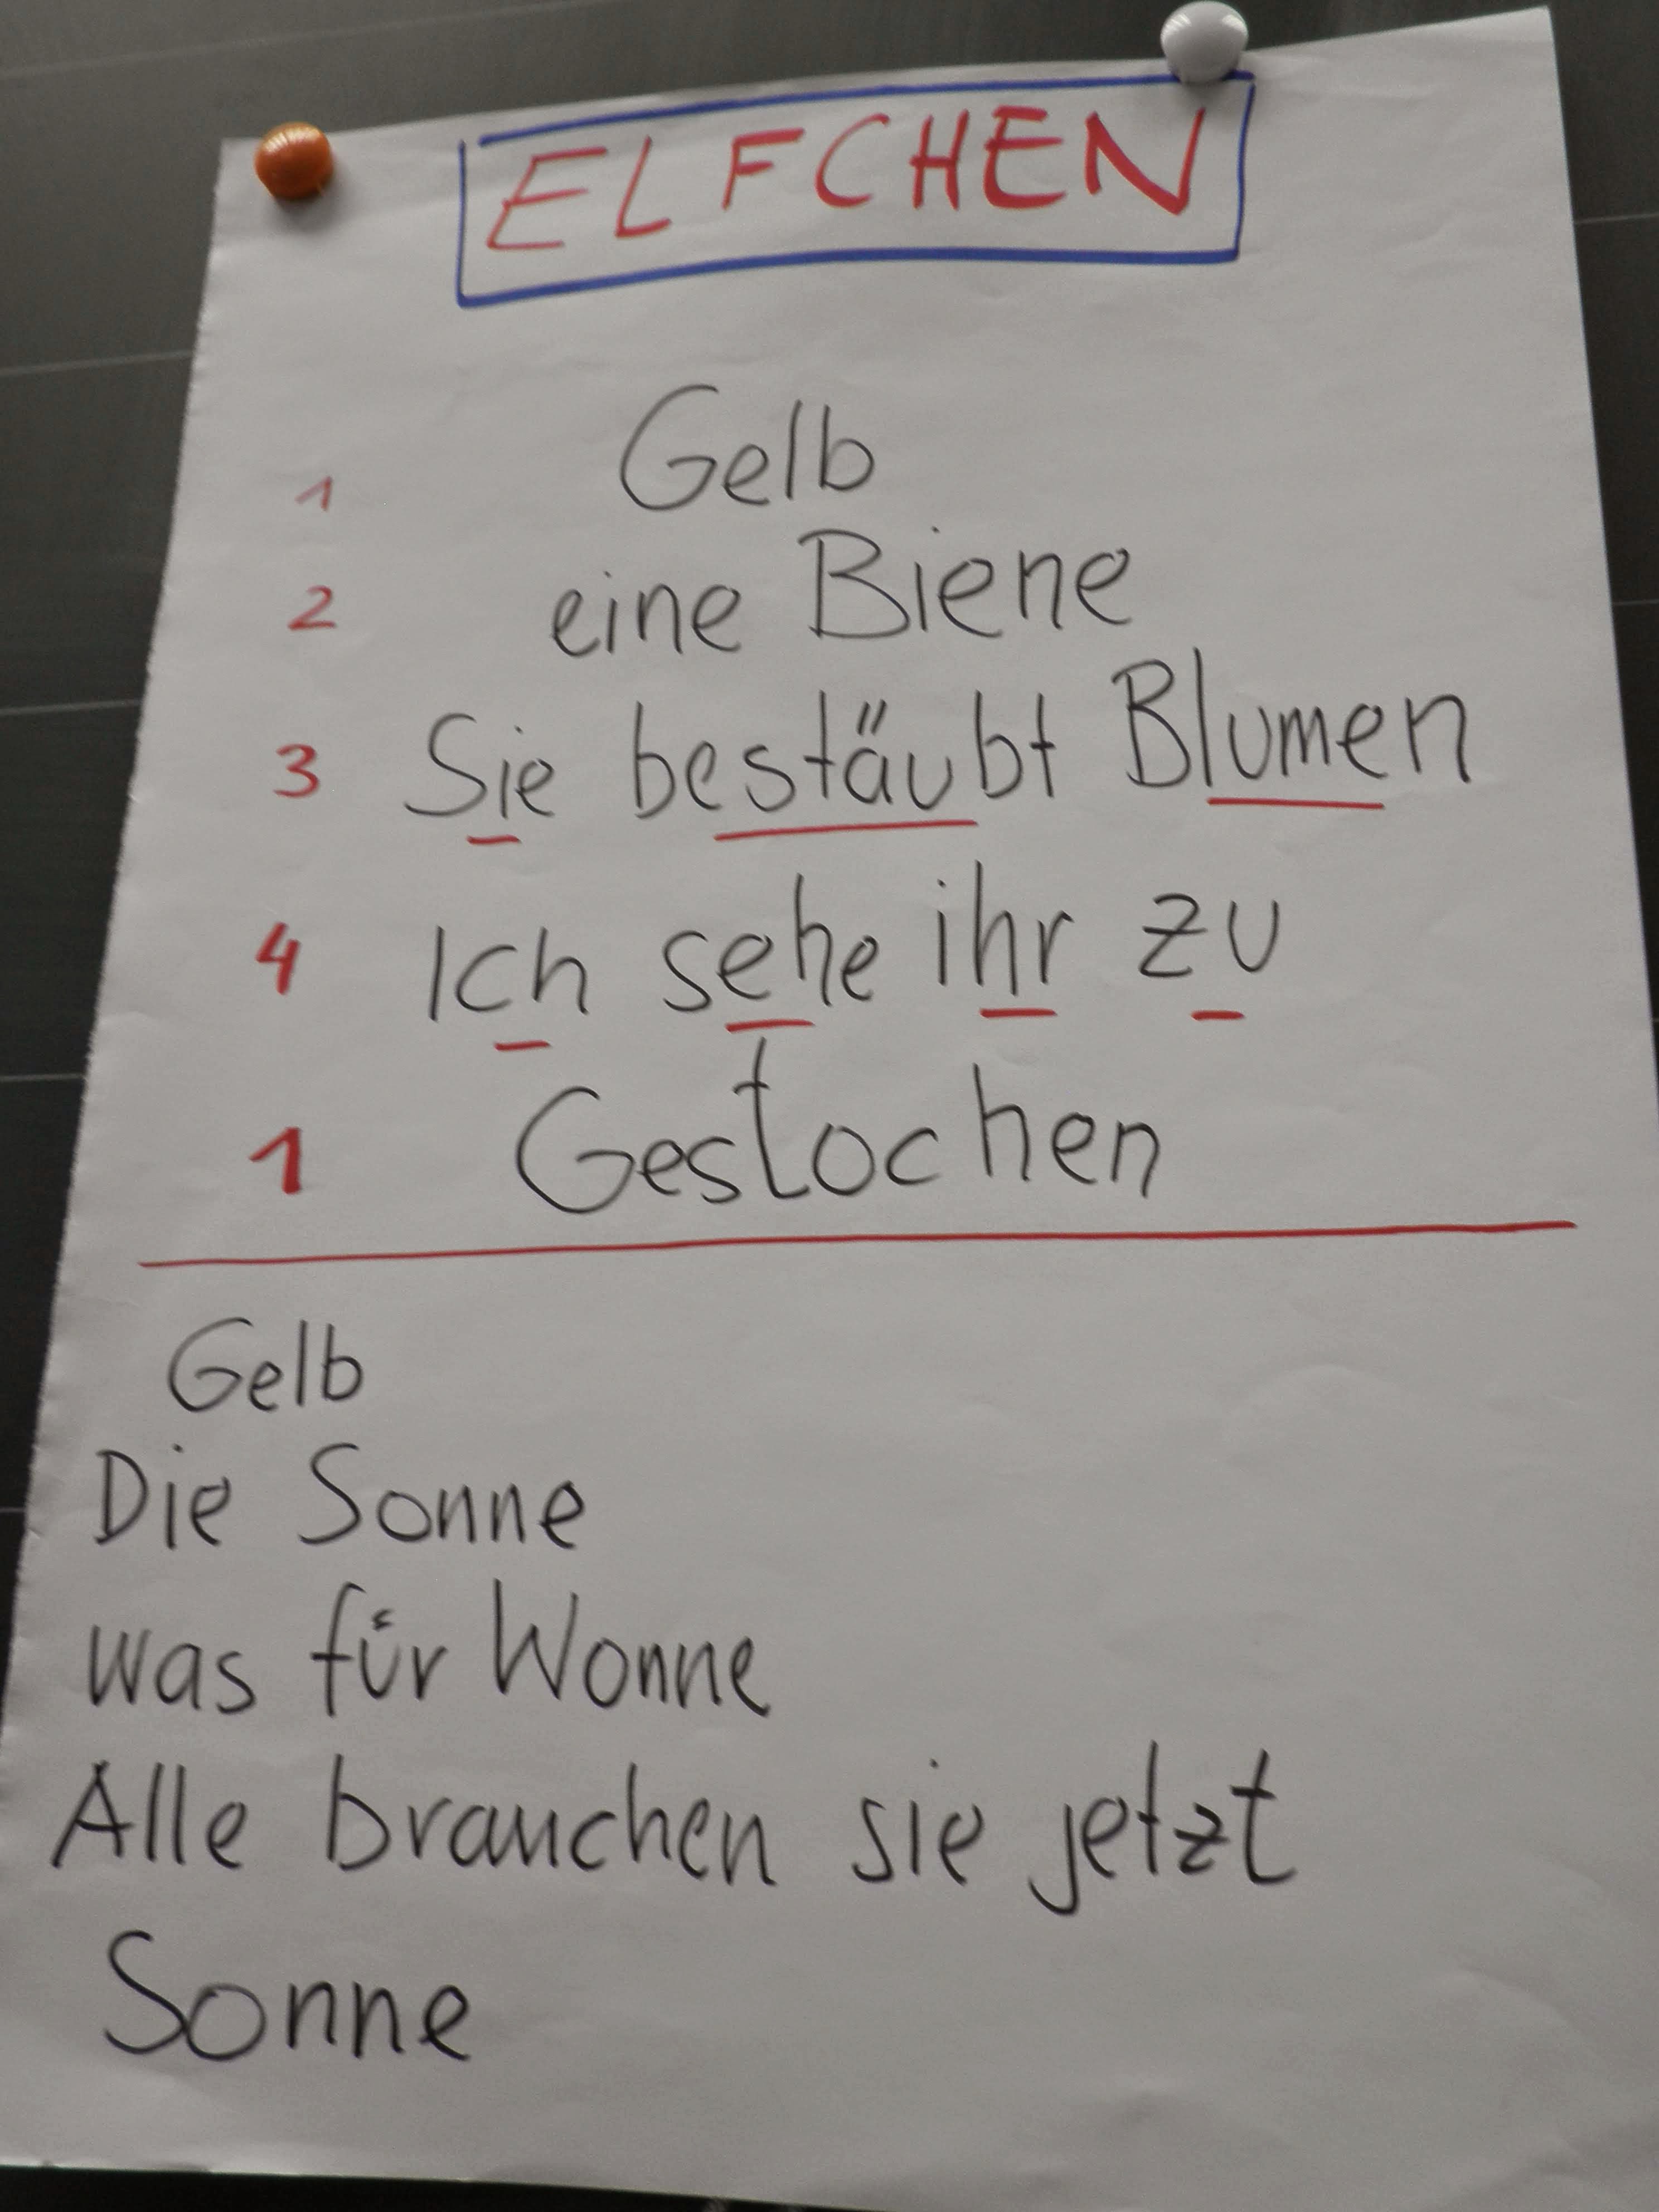 ELFCHEN
1 Gelb
2 eine Biene
3 Sie bestäubt Blumen
4 Ich sehe ihr zu
1 Gestochen
Gelb
Die Sonne
was für Wonne
Alle brauchen sie jetzt
Sonne